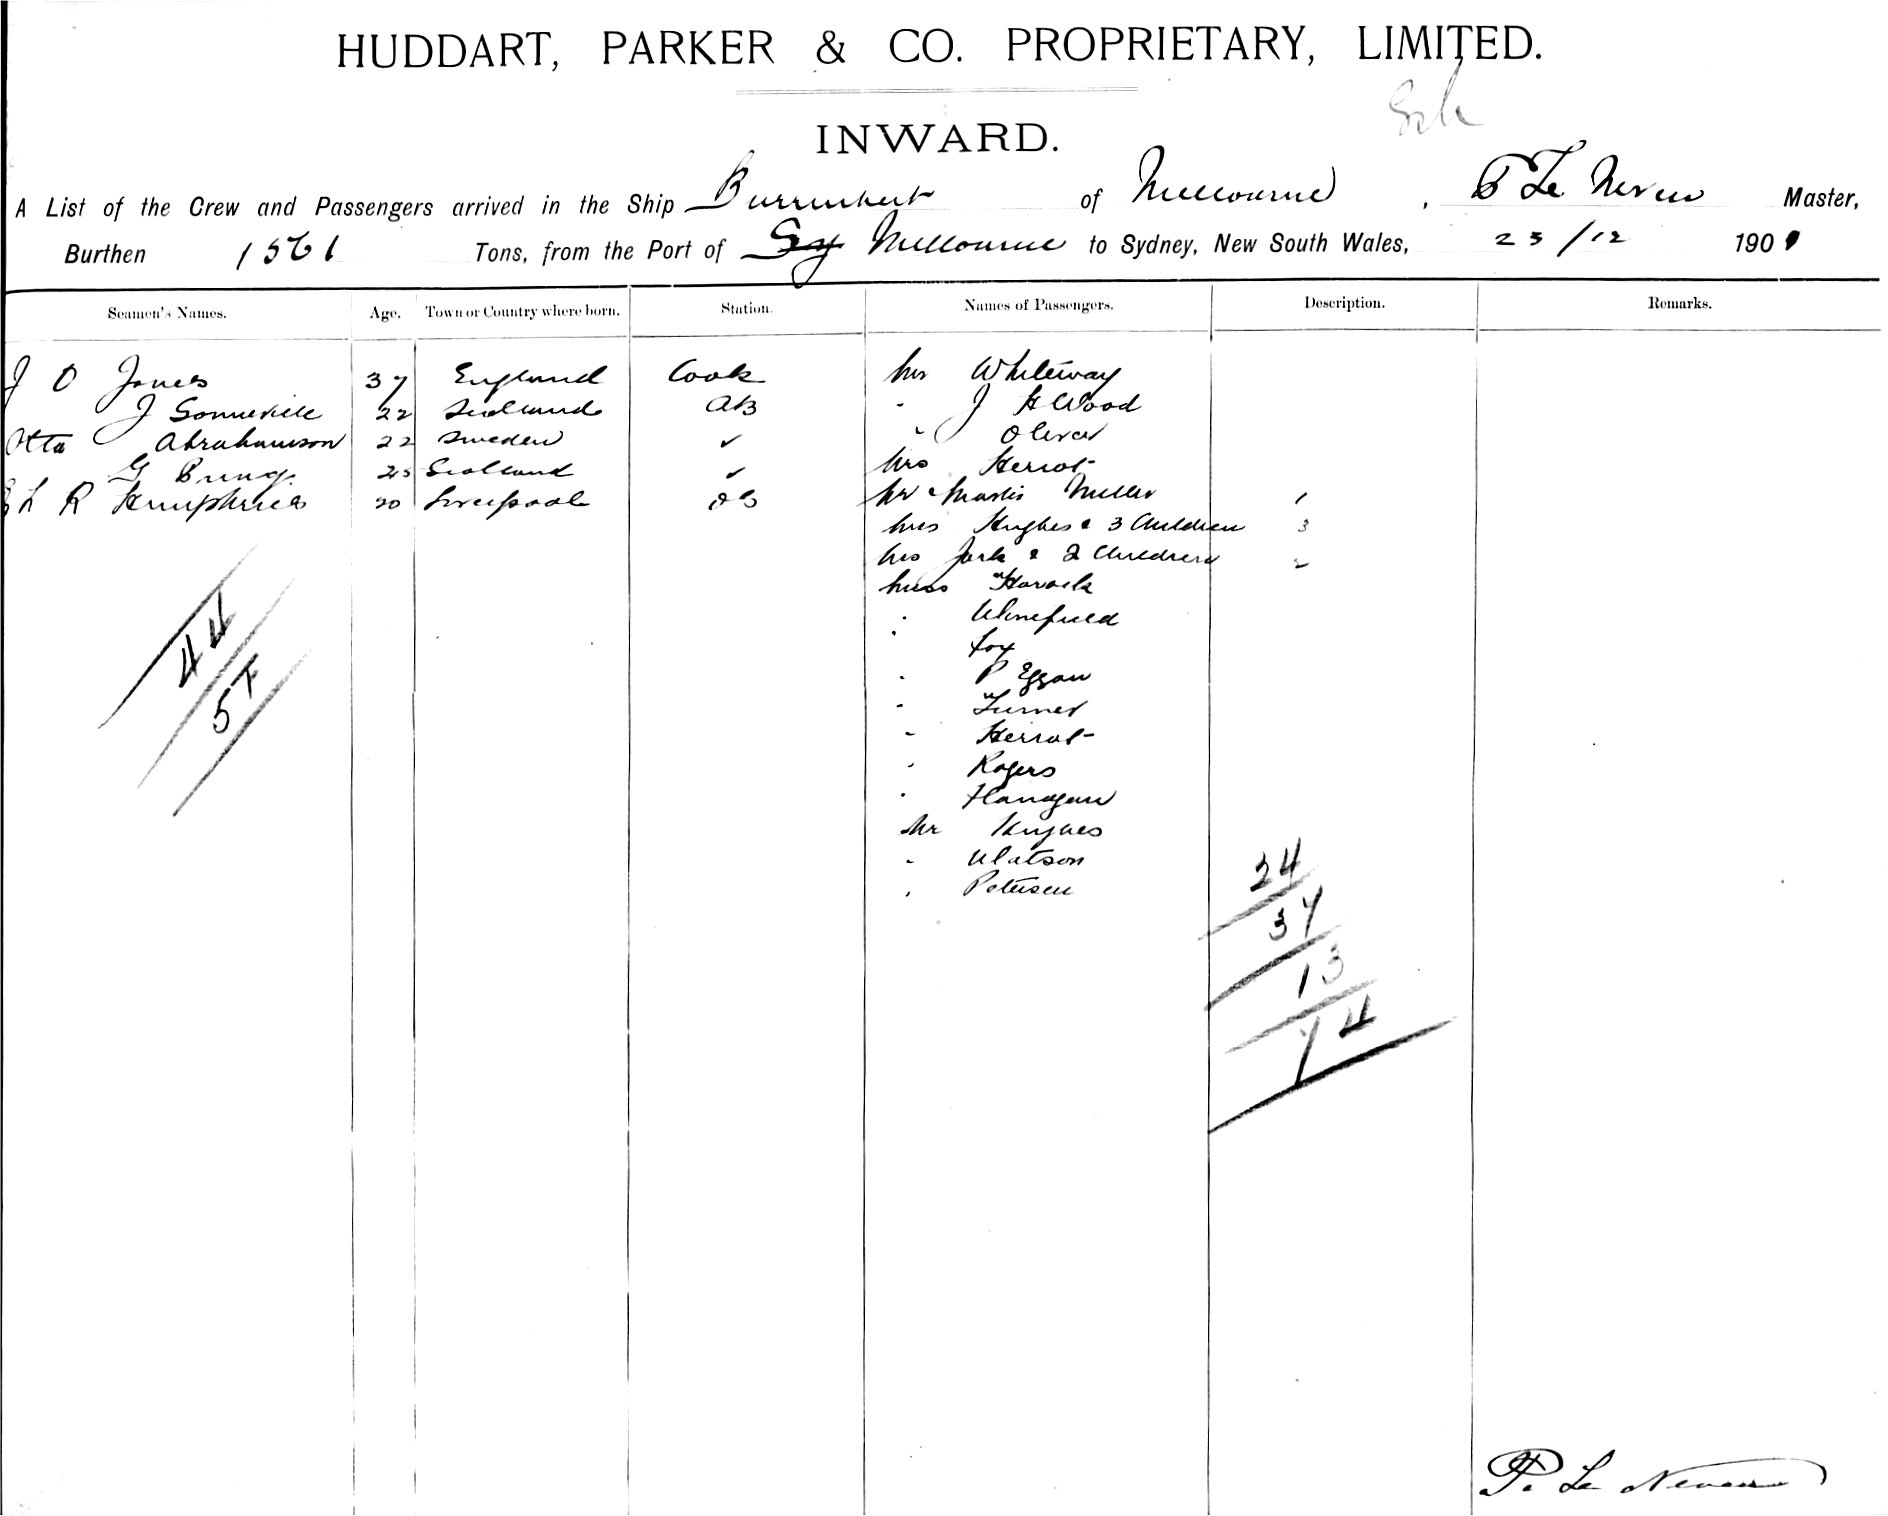 HUDDART, PARKER & CO. PROPRIETARY, LIMITED.
INWARD.
A List of the Crew and Passengers arrived in the Ship Burrumbeet of Melbourne, Le Neveu Master,
Burthen Tons, from the Port of Sy Melbourne to Sydney, New South Wales, 23/12 1901
Seamen's Names. Age. Town or Country where born. Station. Names of Passengers. Description. Remarks.
J O Jones 37 England Cook Mr Whiteway
J Somerville 22 Scotland AB " J H Wood
Otto Abrahamson 22 Sweden " " Oliver
G 25 Scotland " Mrs Herriot
L R Humphries 20 Liverpool OS Mr & Master Miller 1
Mrs Hughes & 3 Children 3
Mrs & 2 Children 2
Miss
" Winefield
" Fox
" P Eggan
" Turner
" Herriot
" Rogers
" Flanagan
Mr Hughes
" Watson
" Petersen
44
57
24
37
13
74
P. Le Neveu